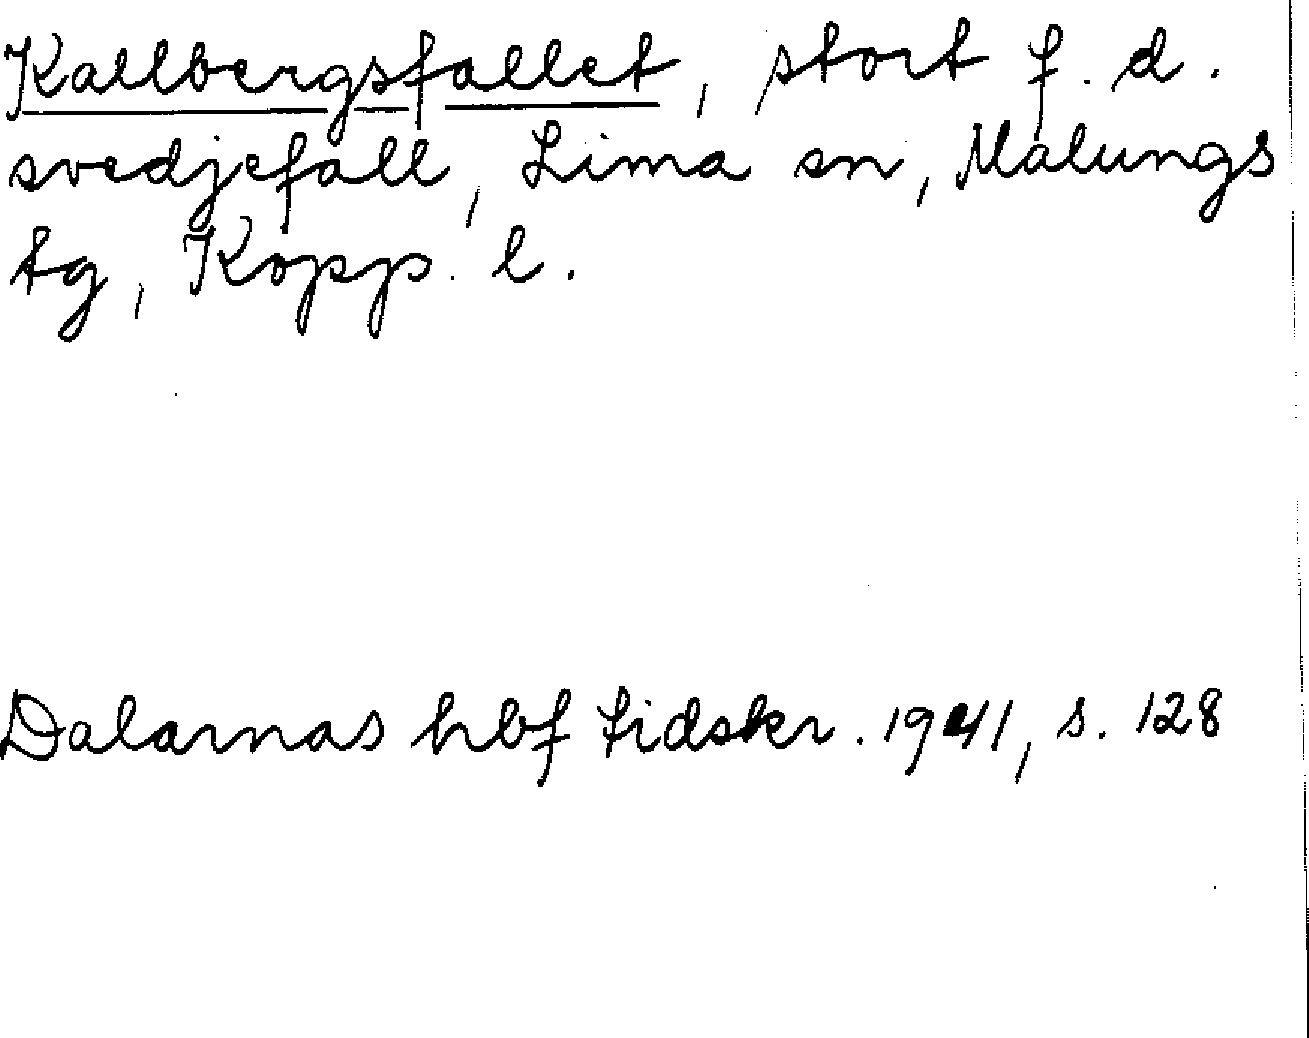 Kallbergsfallet, stort f.d.
svedjefall, Lima sn, Malungs
tg, Kopp. l.
Dalarnas hbf tidskr. 1941, s. 128